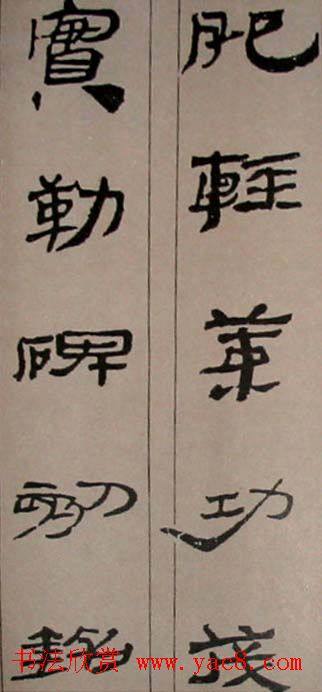 肥輕策功茂
實勒碑刻銘
书法欣赏 www.yac8.com